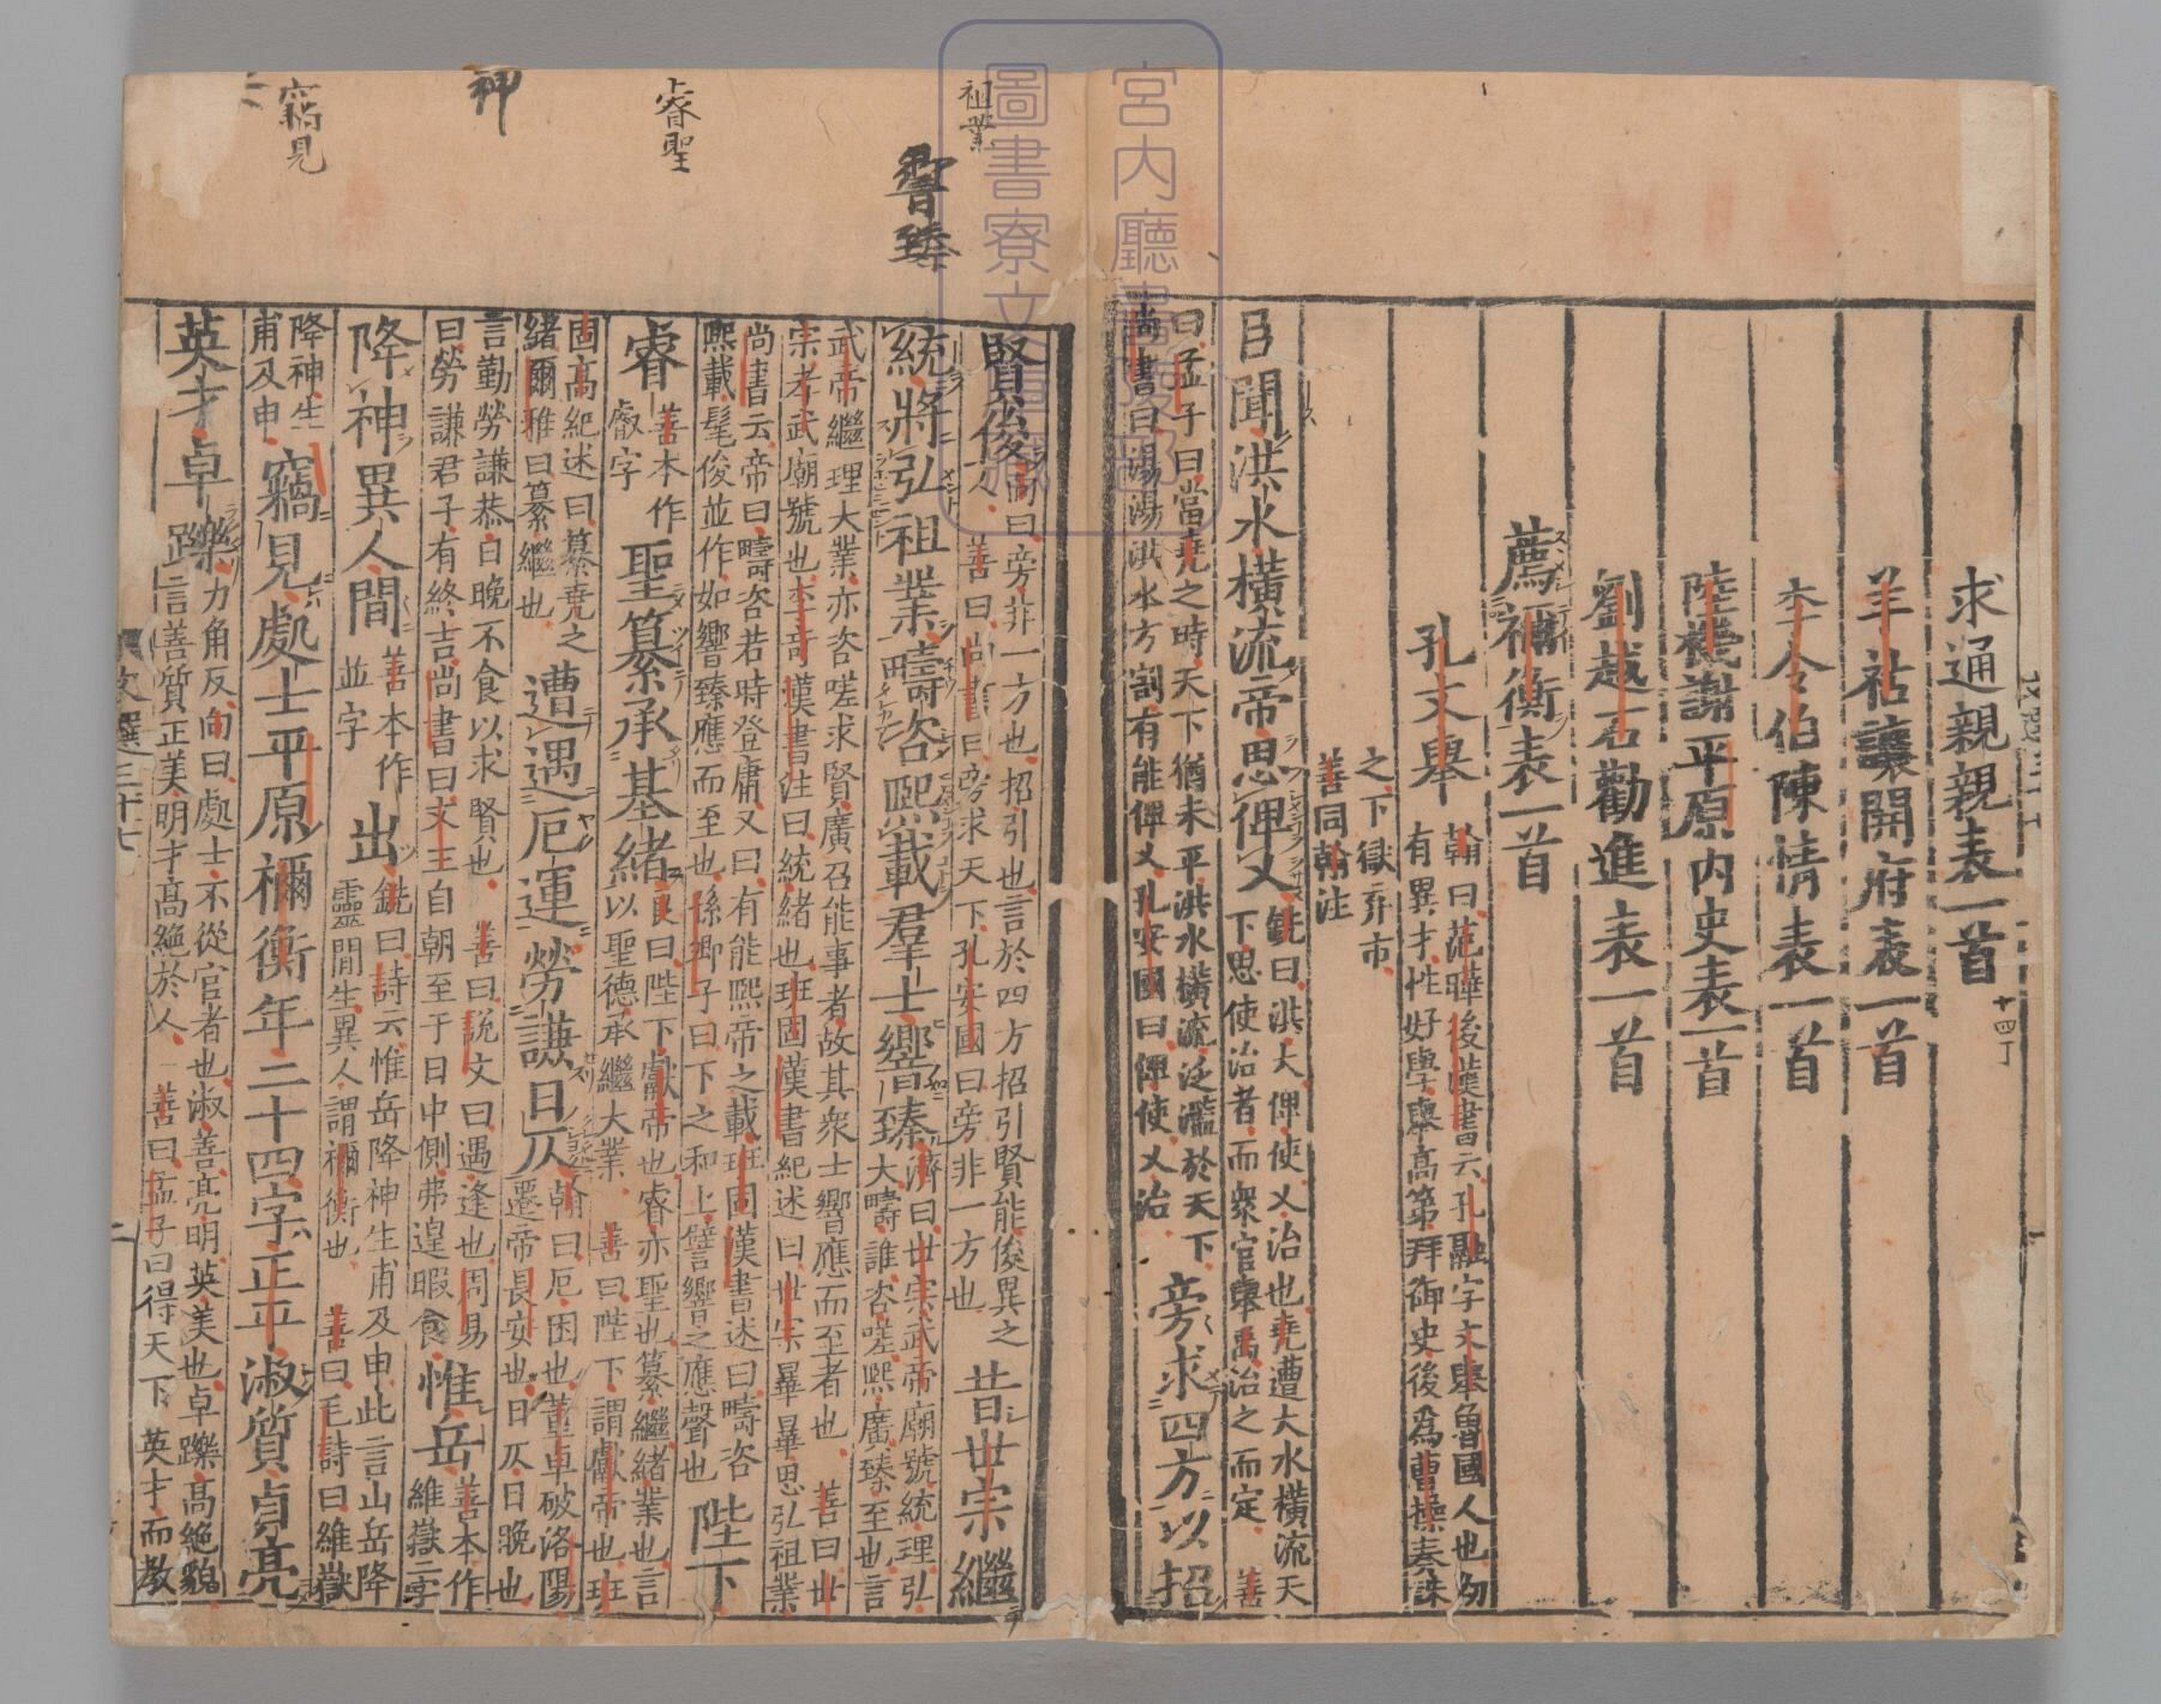 求通親親表一首
羊祜讓開府表一首
李令伯陳情表一首
陸機謝平原内史表一首
劉越石勸進表一首
薦禰衡表一首
孔文舉
翰曰范曄後漢書云孔融字文舉魯國人也幼
有異才性好學舉高第拜御史後爲曹操奏誅
之下獄弃市
善同翰注
臣聞洪水橫流帝思俾乂
銑曰洪大俾使乂治也堯遭大水橫流天
下思使治者而衆官舉禹治之而定 善
曰孟子曰當堯之時天下猶未平洪水橫流泛濫於天下
尚書曰湯湯洪水方割有能俾乂孔安國曰俾使乂治
旁求四方以招
賢俊
向曰旁非一方也招引也言於四方招引賢能俊異之
人 善曰尚書曰旁求天下孔安國曰旁非一方也
昔世宗繼
統將弘祖業疇咨熙載羣士響臻
濟曰世宗武帝廟號統理弘
大疇誰咨嗟熙廣臻至也言
武帝繼理大業亦咨嗟求賢廣召能事者故其衆士響應而至者也 善曰世
宗孝武廟號也李奇漢書注曰統緒也班固漢書紀述曰世宗曄曄思弘祖業
尚書云帝曰疇咨若時登庸又曰有能熙帝之載班固漢書述曰疇咨
熙載髦俊並作如響臻應而至也孫卿子曰下之和上譬響之應聲也
陛下
睿
善本作
叡字
聖纂承基緒
良曰陛下獻帝也睿亦聖也纂繼緒業也言
以聖德承繼大業 善曰陛下謂獻帝也班
固高紀述曰纂堯之
緒爾雅曰纂繼也
遭遇厄運勞謙日仄
翰曰厄困也董卓破洛陽
遷帝長安也日仄日晚也
言勤勞謙恭日晚不食以求賢也 善曰説文曰遇逢也周易
曰勞謙君子有終吉尚書曰文王自朝至于日中側弗遑暇食
惟岳
善本作
維嶽二字
降神異人間
善本作
並字
出
銑曰詩云惟岳降神生甫及申此言山岳降
靈間生異人謂禰衡也 善曰毛詩曰維嶽
降神生
甫及申
竊見處士平原禰衡年二十四字正平淑質貞亮
英才卓躒
力角反向曰處士不從官者也淑善亮明英美也卓躒高絶貌
言善質正美明才高絶於人 善曰孟子曰得天下英才而教
文選三十七
二
祖業
響臻
睿聖
神
竊見
十四丁
宮内廳書陵部
圖書寮文庫蔵